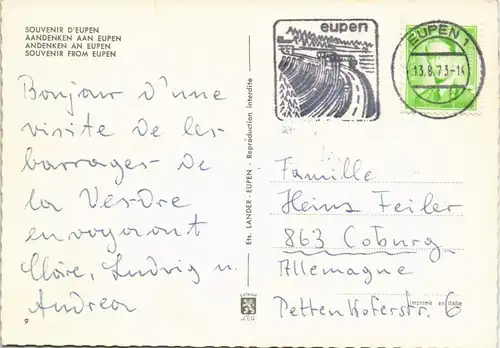 SOUVENIR D'EUPEN
AANDENKEN AAN EUPEN
ANDENKEN AN EUPEN
SOUVENIR FROM EUPEN
eupen
EUPEN 1
13.8.73-14
Bonjour d'une
visite de les
barrages de
la Vesdre
envoyaont
Cläre, Ludwig u.
Andrea
Ets. LANDER - EUPEN - Reproduction interdite
Famille
Heinz Feiler
863 Coburg
Allemagne
Pettenkoferstr. 6
Imprimé en Italie
9